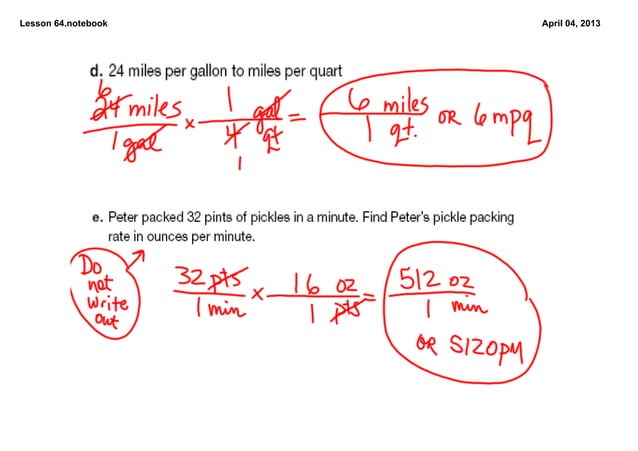 Lesson 64.notebook
April 04, 2013
d. 24 miles per gallon to miles per quart
6
24 miles / 1 gal × 1 gal / 4 qt = 6 miles / 1 qt. OR 6 mpq
1
e. Peter packed 32 pints of pickles in a minute. Find Peter's pickle packing
rate in ounces per minute.
Do
not
write
out
32 pts / 1 min × 16 oz / 1 pts = 512 oz / 1 min
OR 512opm